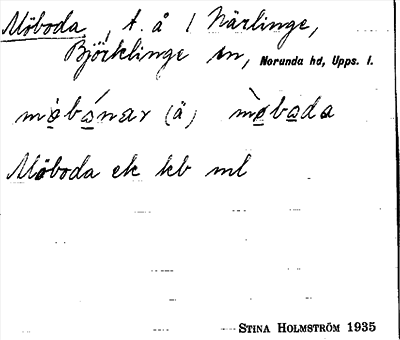 Möboda, t. å 1 Närlinge,
Björklinge sn, Norunda hd, Upps. l.
mobonar (å) mobada
Möboda ek kb ml
STINA HOLMSTRÖM 1935